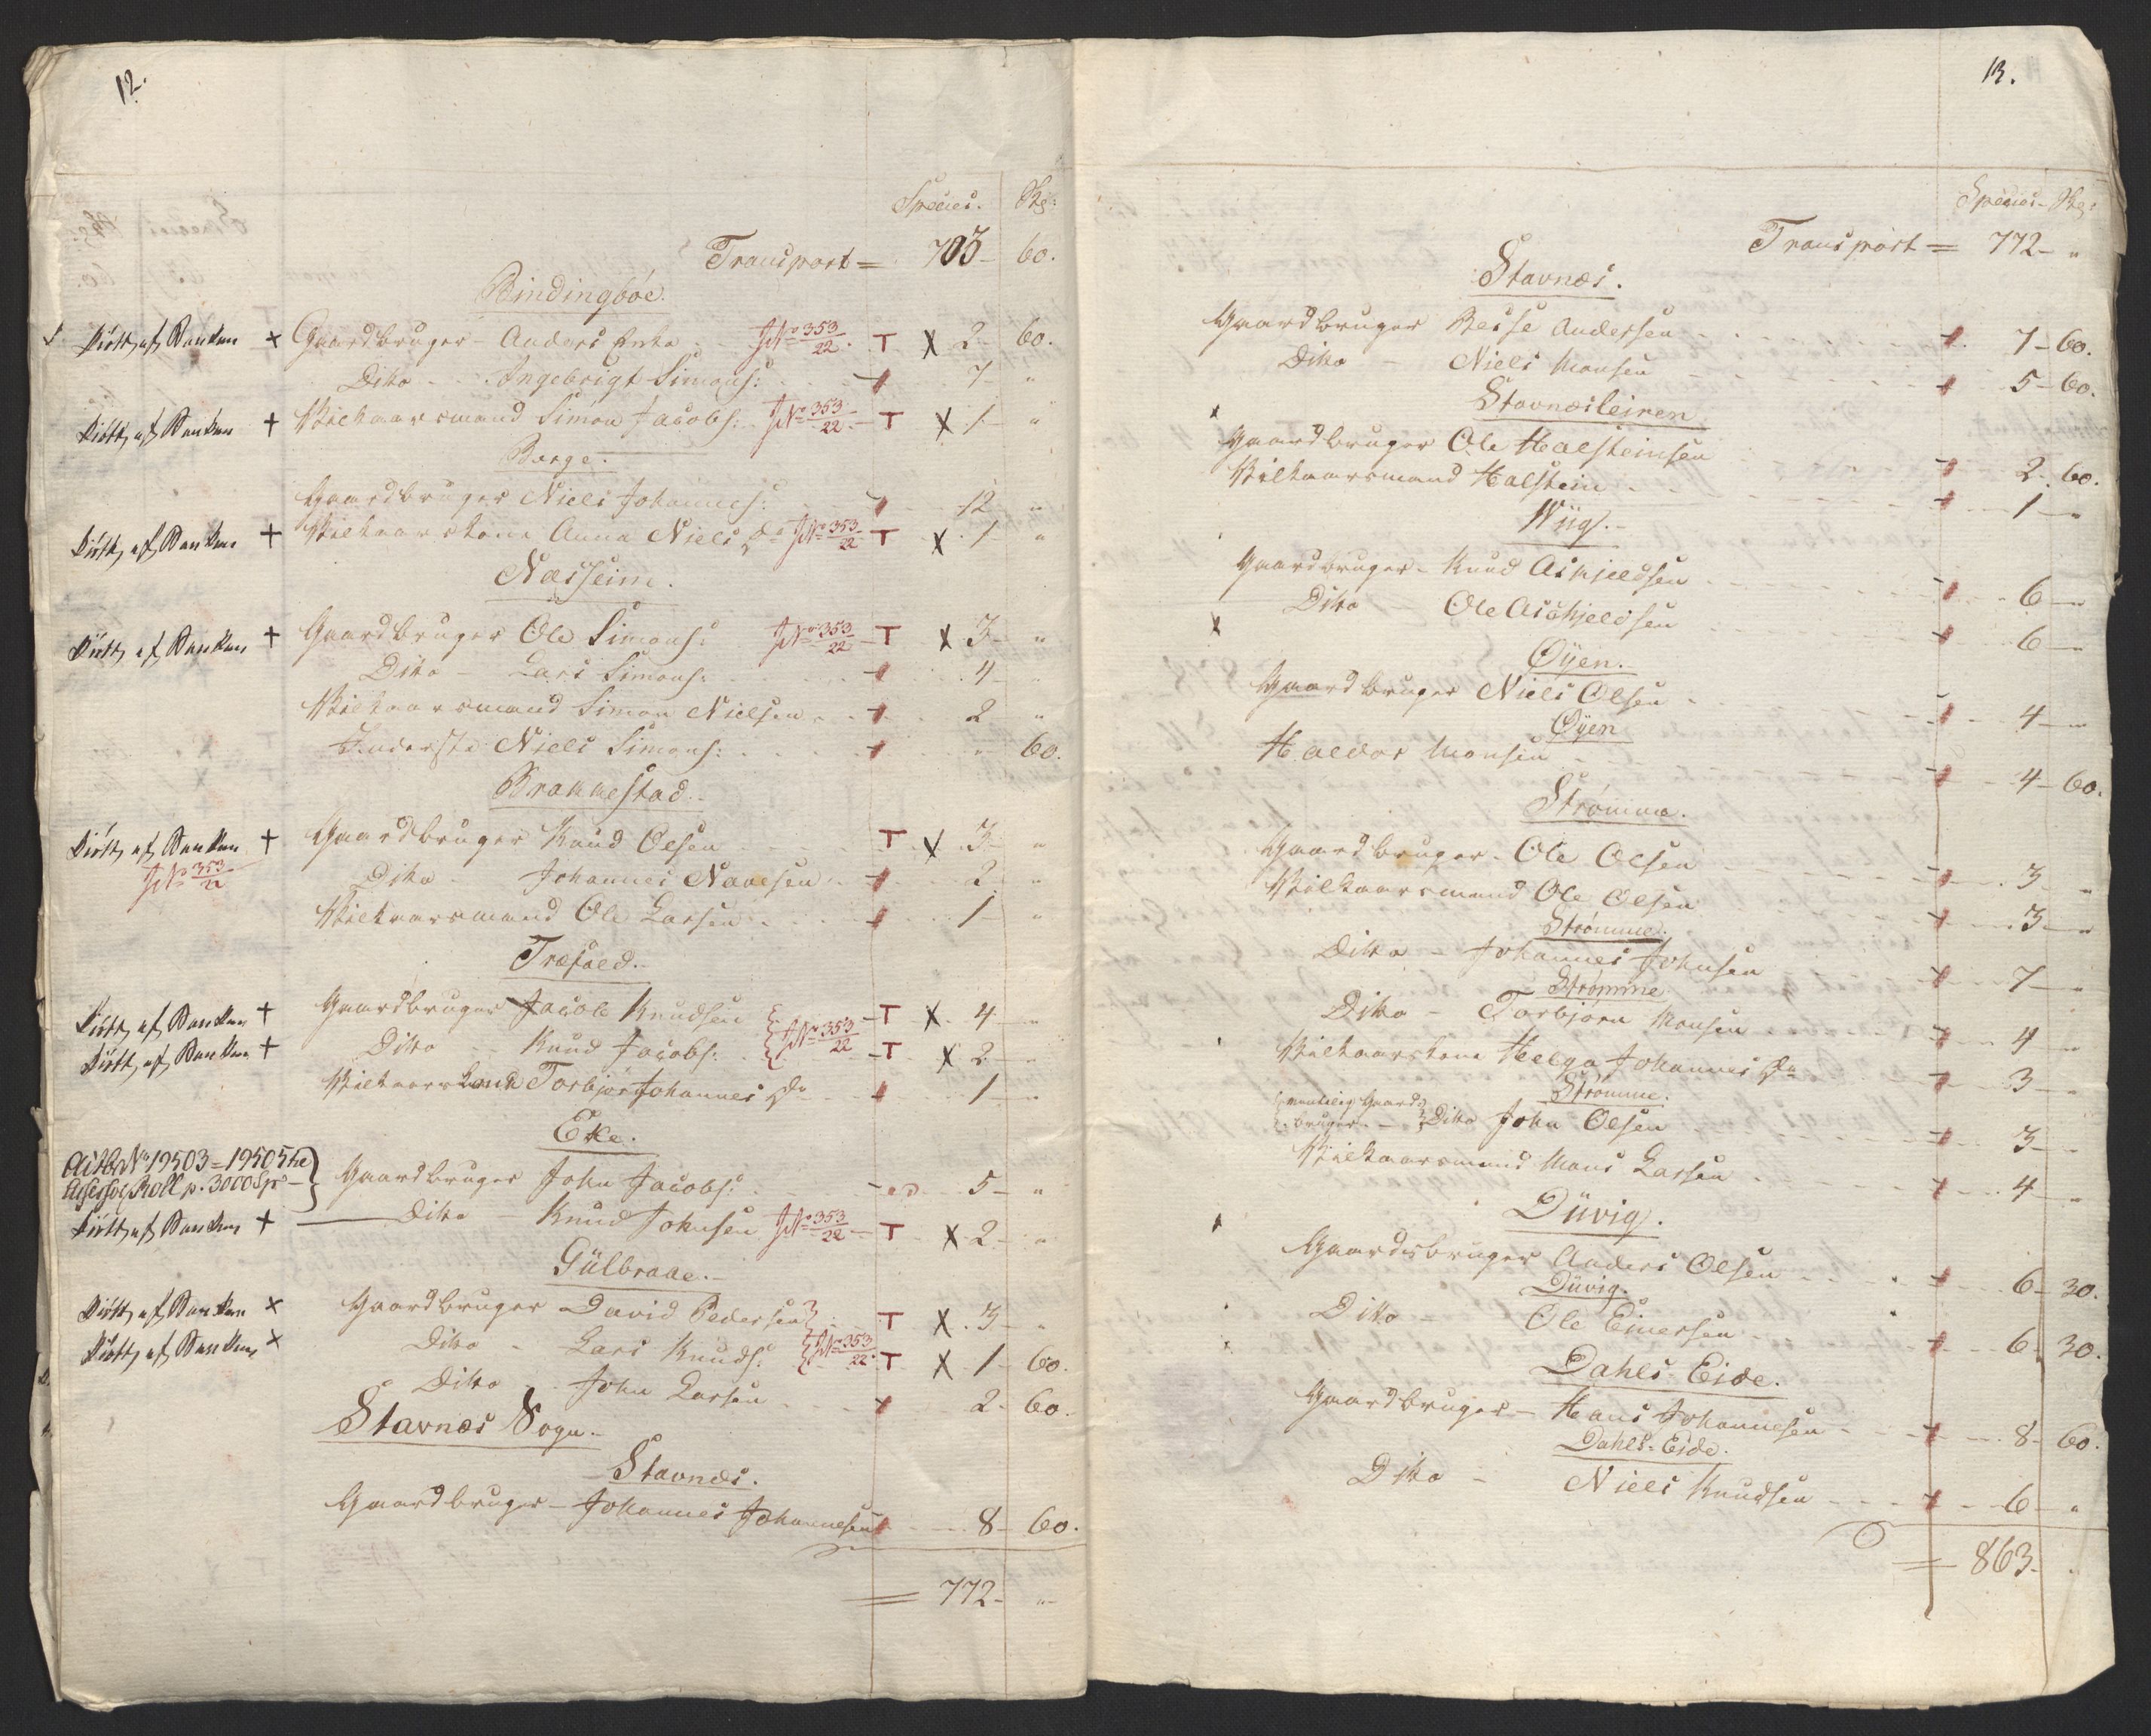 12.
Species. Skg:
Transport = 703 - 60.
Bindingbøe.
Kiöbt af Banken × Gaardbruger - Anders Enka JNo 353/22. T X 2 - 60.
Dito - Ingebrigt Simons: 7 - "
Kiöbt af Banken + Wilkaarsmand Simon Jacobs: JNo 353/22 T X 1 - "
Berge.
Gaardbruger Niels Johannes: 12 "
Kiöbt af Banken + Wilkaarskone Anna Niels Dr JNo 353/22 T X 1 - "
Næsseim.
Kiöbt af Banken + Gaardbruger Ole Simons: JNo 353/22 T X 3 - "
Dito - Lars Simons: 4 - "
Wilkaarsmand Simon Nielsen 2 "
Inderste Niels Simons: " 60.
Brakkestad.
Kiöbt af Banken + Gaardbruger Knud Olsen T X 3 - "
JNo 353/22
Dito - Johannes Navesen 2 - "
Wilkaarsmand Ole Larsen 1 - "
Træfald.
Kiöbt af Banken + Gaardbruger Jacob Knudsen T X 4 - "
Kiöbt af Banken + Dito - Knud Jacobs: JNo 353/22 T X 2 - "
Wilkaarskone Torbjør Johannes Dr 1 - "
Eke.
No 19503 = 19505
Roll p. 3000 Sp } Gaardbruger John Jacobs: 5 - "
Kiöbt af Banken + Dito - Knud Johnsen JNo 353/22 T X 2 - "
Gülbraae.
Kiöbt af Banken × Gaardbruger David Pedersen T X 3 - "
Kiöbt af Banken × Dito - Lars Knuds: JNo 353/22 T X 1 - 60.
Dito - John Larsen 2 - 60.
Stavnæs Sogn.
Stavnæs.
Gaardbruger - Johannes Johannesen 8 - 60.
= 772 - "
13.
Species - Skg:
Transport = 772 - "
Stavnæs.
Gaardbruger Besse Andersen 7 - 60.
Dito - Niels Monsen 5 - 60.
Stavnæsleiren
Gaardbruger Ole Halsteinsen 2 - 60.
Wilkaarsmand Halstein 1 - "
Wüg.
Gaardbruger - Knud Askjeldsen 6 - "
Dito - Ole Aschjeldsen 6 - "
Øÿen.
Gaardbruger Niels Olsen 4 - "
Øÿen
Haldor Monsen 4 - 60.
Strømme.
Gaardbruger - Ole Olsen 3 - "
Wilkaarsmand Ole Olsen 3 - "
Strømme.
Dito - Johannes Johnsen 7 - "
Strømme
Dito - Torbjörn Monsen 4 - "
Wilkaarskone Helga Johannes Dr 3 - "
Strømme.
Gaard
bruger - Dito John Olsen 3 - "
Wilkaarsmand Mons Larsen 4 - "
Düvig.
Gaardsbruger Anders Olsen 6 - 30.
Düvig.
Dito - Ole Einersen 6 - 30.
Dahls-Eide.
Gaardbruger - Hans Johannesen 8 - 60.
Dahls-Eide.
Dito - Niels Knudsen 6 - "
= 863 - "